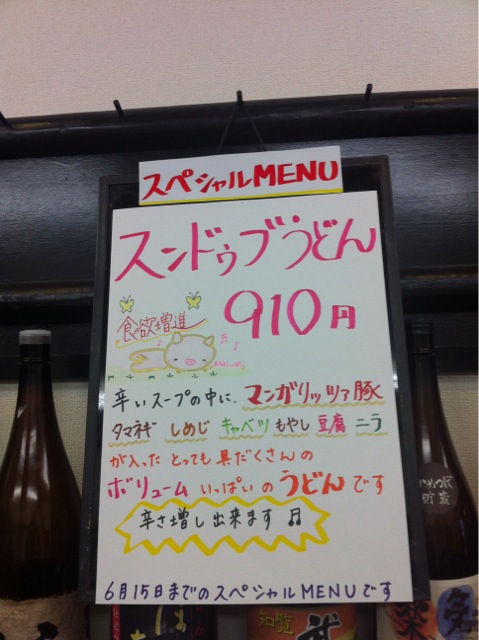 スペシャルMENU
スンドゥブうどん
食欲増進
910円
辛いスープの中に、マンガリッツァ豚
タマネギ しめじ キャベツ もやし 豆腐 ニラ
が入った とっても具だくさんの
ボリューム いっぱいの うどんです
辛さ増し出来ます♬
6月15日までのスペシャルMENUです
貯蔵
知覧